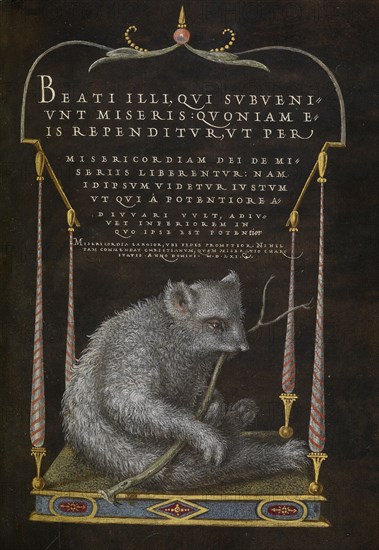 BEATI ILLI, QVI SVBVENI⸗
VNT MISERIS: QVONIAM E⸗
IS REPENDITVR, VT PER
MISERICORDIAM DEI DE MI⸗
SERIIS LIBERENTVR: NAM
IDIPSVM VIDETVR IVSTVM
VT QVI À POTENTIORE A⸗
DIVVARI VVLT, ADIV⸗
VET INFERIOREM IN
QVO IPSE EST POTENtior
MISERICORDIA LARGIOR, VBI FIDES PROMPTIOR. NIHIL
TAM COMMENDAT CHRISTIANVM, QVAM MISERATIO CHARI⸗
TATIS. ANNO DOMINI M.D.LXI.